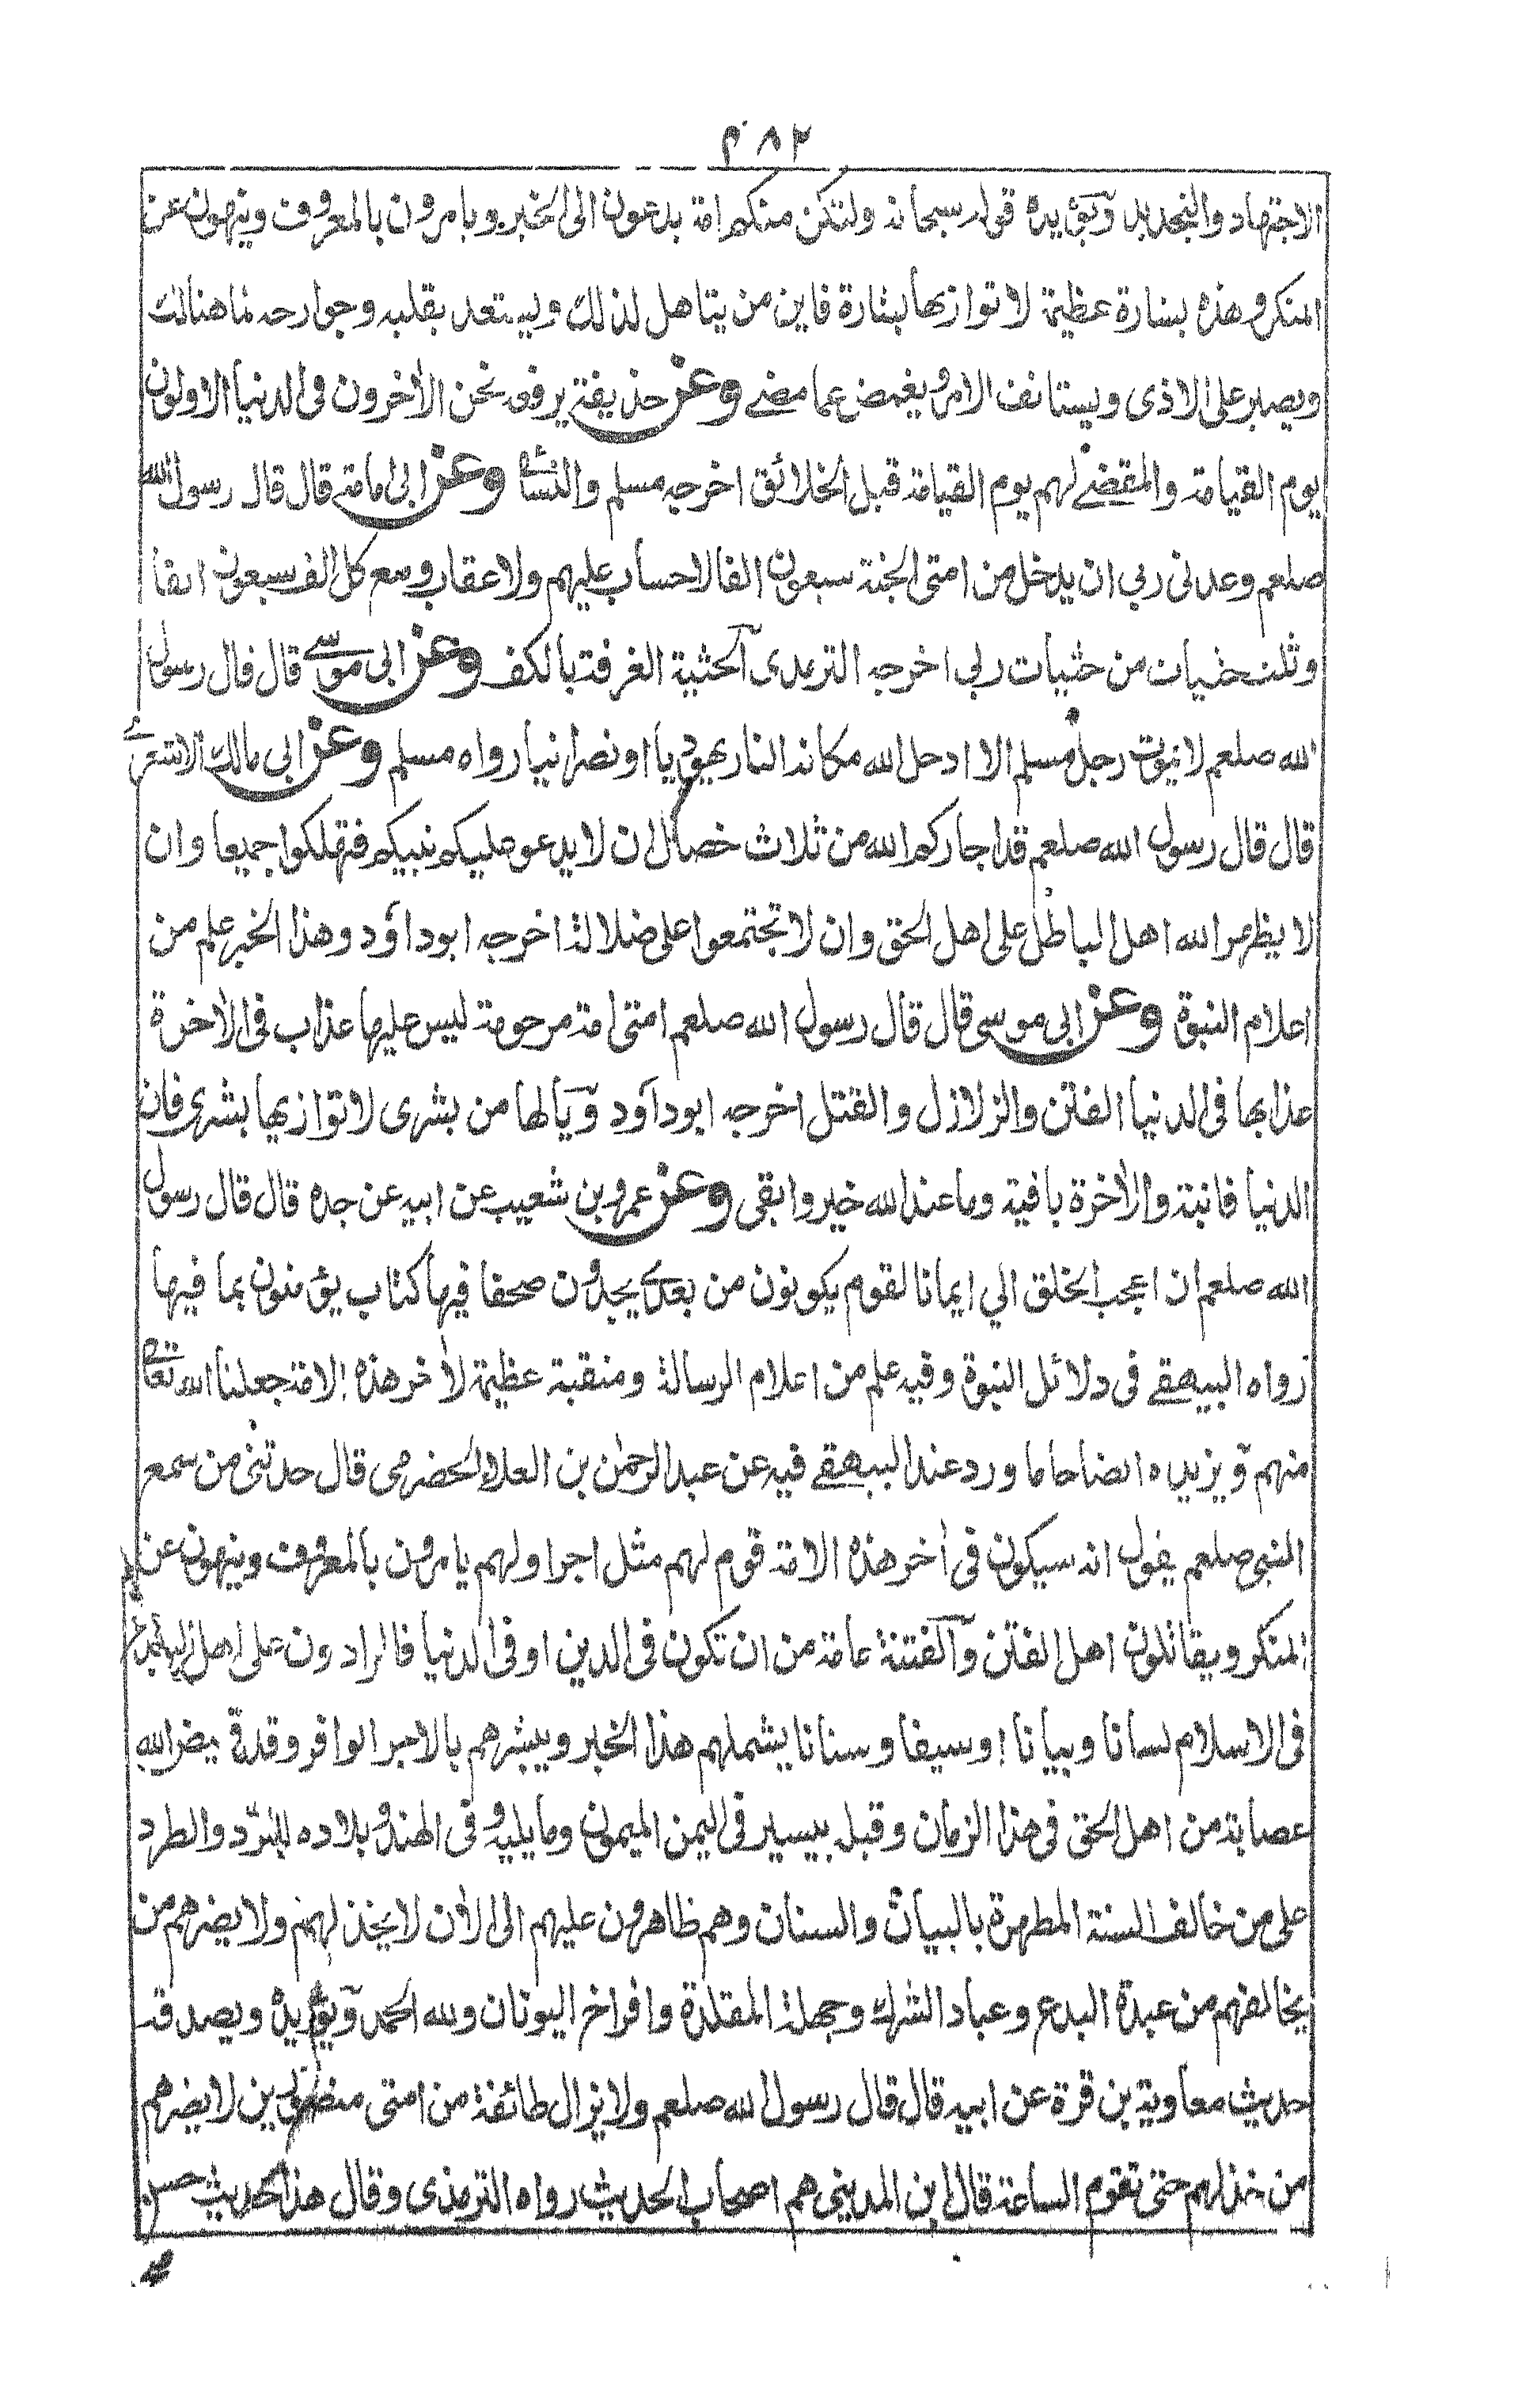 ٢٨٢
الاجتهاد والتجديد ويؤيده قوله سبحانه ولتكن منكم امة يدعون الى الخير ويامرون بالمعروف وينهون عن
المنكر وهذه بشارة عظيمة لا توازيها بشارة فاين من يتاهل لذلك ويستعد بقلبه وجوارحه لما هنالك
ويصبر على الاذى ويستانف الامر ويغمض عما مضى وعن حذيفة يرفعه نحن الاخرون فى الدنيا الاولون
يوم القيامة والمقضى لهم يوم القيامة قبل الخلائق اخرجه مسلم والنسائى وعن ابى مامة قال قال رسول الله
صلعم وعدنى ربى ان يدخل من امتى الجنة سبعون الفا لا حساب عليهم ولا عقاب ومع كل الف سبعون الفا
وثلث حثيات من حثيات ربى اخرجه الترمذى الحثية الغرفة بالكف وعن ابى موسى قال قال رسول
الله صلعم لا يموت رجل مسلم الا ادخل الله مكانه النار يهوديا او نصرانيا رواه مسلم وعن ابى مالك الاشعرى
قال قال رسول الله صلعم قد اجاركم الله من ثلاث خصال ان لا يدعو عليكم نبيكم فتهلكوا جميعا وان
لا يظهر الله اهل الباطل على اهل الحق وان لا تجتمعوا على ضلالة اخرجه ابوداؤد وهذا الخبر علم من
اعلام النبوة وعن ابى موسى قال قال رسول الله صلعم امتى امة مرحومة ليس عليها عذاب فى الاخرة
عذابها فى الدنيا الفتن والزلازل والقتل اخرجه ابوداود ويالها من بشرى لا توازيها بشرى فان
الدنيا فانية والاخرة باقية وما عند الله خير وابقى وعن عمرو بن شعيب عن ابيه عن جده قال قال رسول
الله صلعم ان اعجب الخلق الي ايمانا لقوم يكونون من بعدى يجدون صحفا فيها كتاب يؤمنون بما فيها
رواه البيهقى فى دلائل النبوة وفيه علم من اعلام الرسالة ومنقبة عظيمة لاخر هذه الامة جعلنا الله تعالى
منهم ويزيده ايضاحا ما ورد عند البيهقى فيه عن عبد الرحمن بن العلاء الحضرمى قال حدثنى من سمع
النبى صلعم يقول انه سيكون فى اخر هذه الامة قوم لهم مثل اجر اولهم يامرون بالمعروف وينهون عن
المنكر ويقاتلون اهل الفتن والفتنة عامة من ان تكون فى الدين او فى الدنيا فالرادون على اهل
فى الاسلام لسانا وبيانا وسيفا وسنانا يشملهم هذا الخبر ويبشرهم بالاجر الوافر وقد قيض الله
عصابة من اهل الحق فى هذا الزمان وقبله بيسير فى اليمن الميمون وما يليه وفى الهند وبلاده للرد والطرد
على من خالف السنة المطهرة بالبيان والسنان وهم ظاهرون عليهم الى الان لا يخذلهم ولا يضرهم من
يخالفهم من عبدة البدع وعباد الشرك وجهلة المقلدة وافراخ اليونان ولله الحمد ويؤيده ويصدقه
حديث معاوية بن قرة عن ابيه قال قال رسول الله صلعم ولا يزال طائفة من امتى منصورين لا يضرهم
من خذلهم حتى تقوم الساعة قال ابن المدينى هم اصحاب الحديث رواه الترمذى وقال هذا الحديث حسن